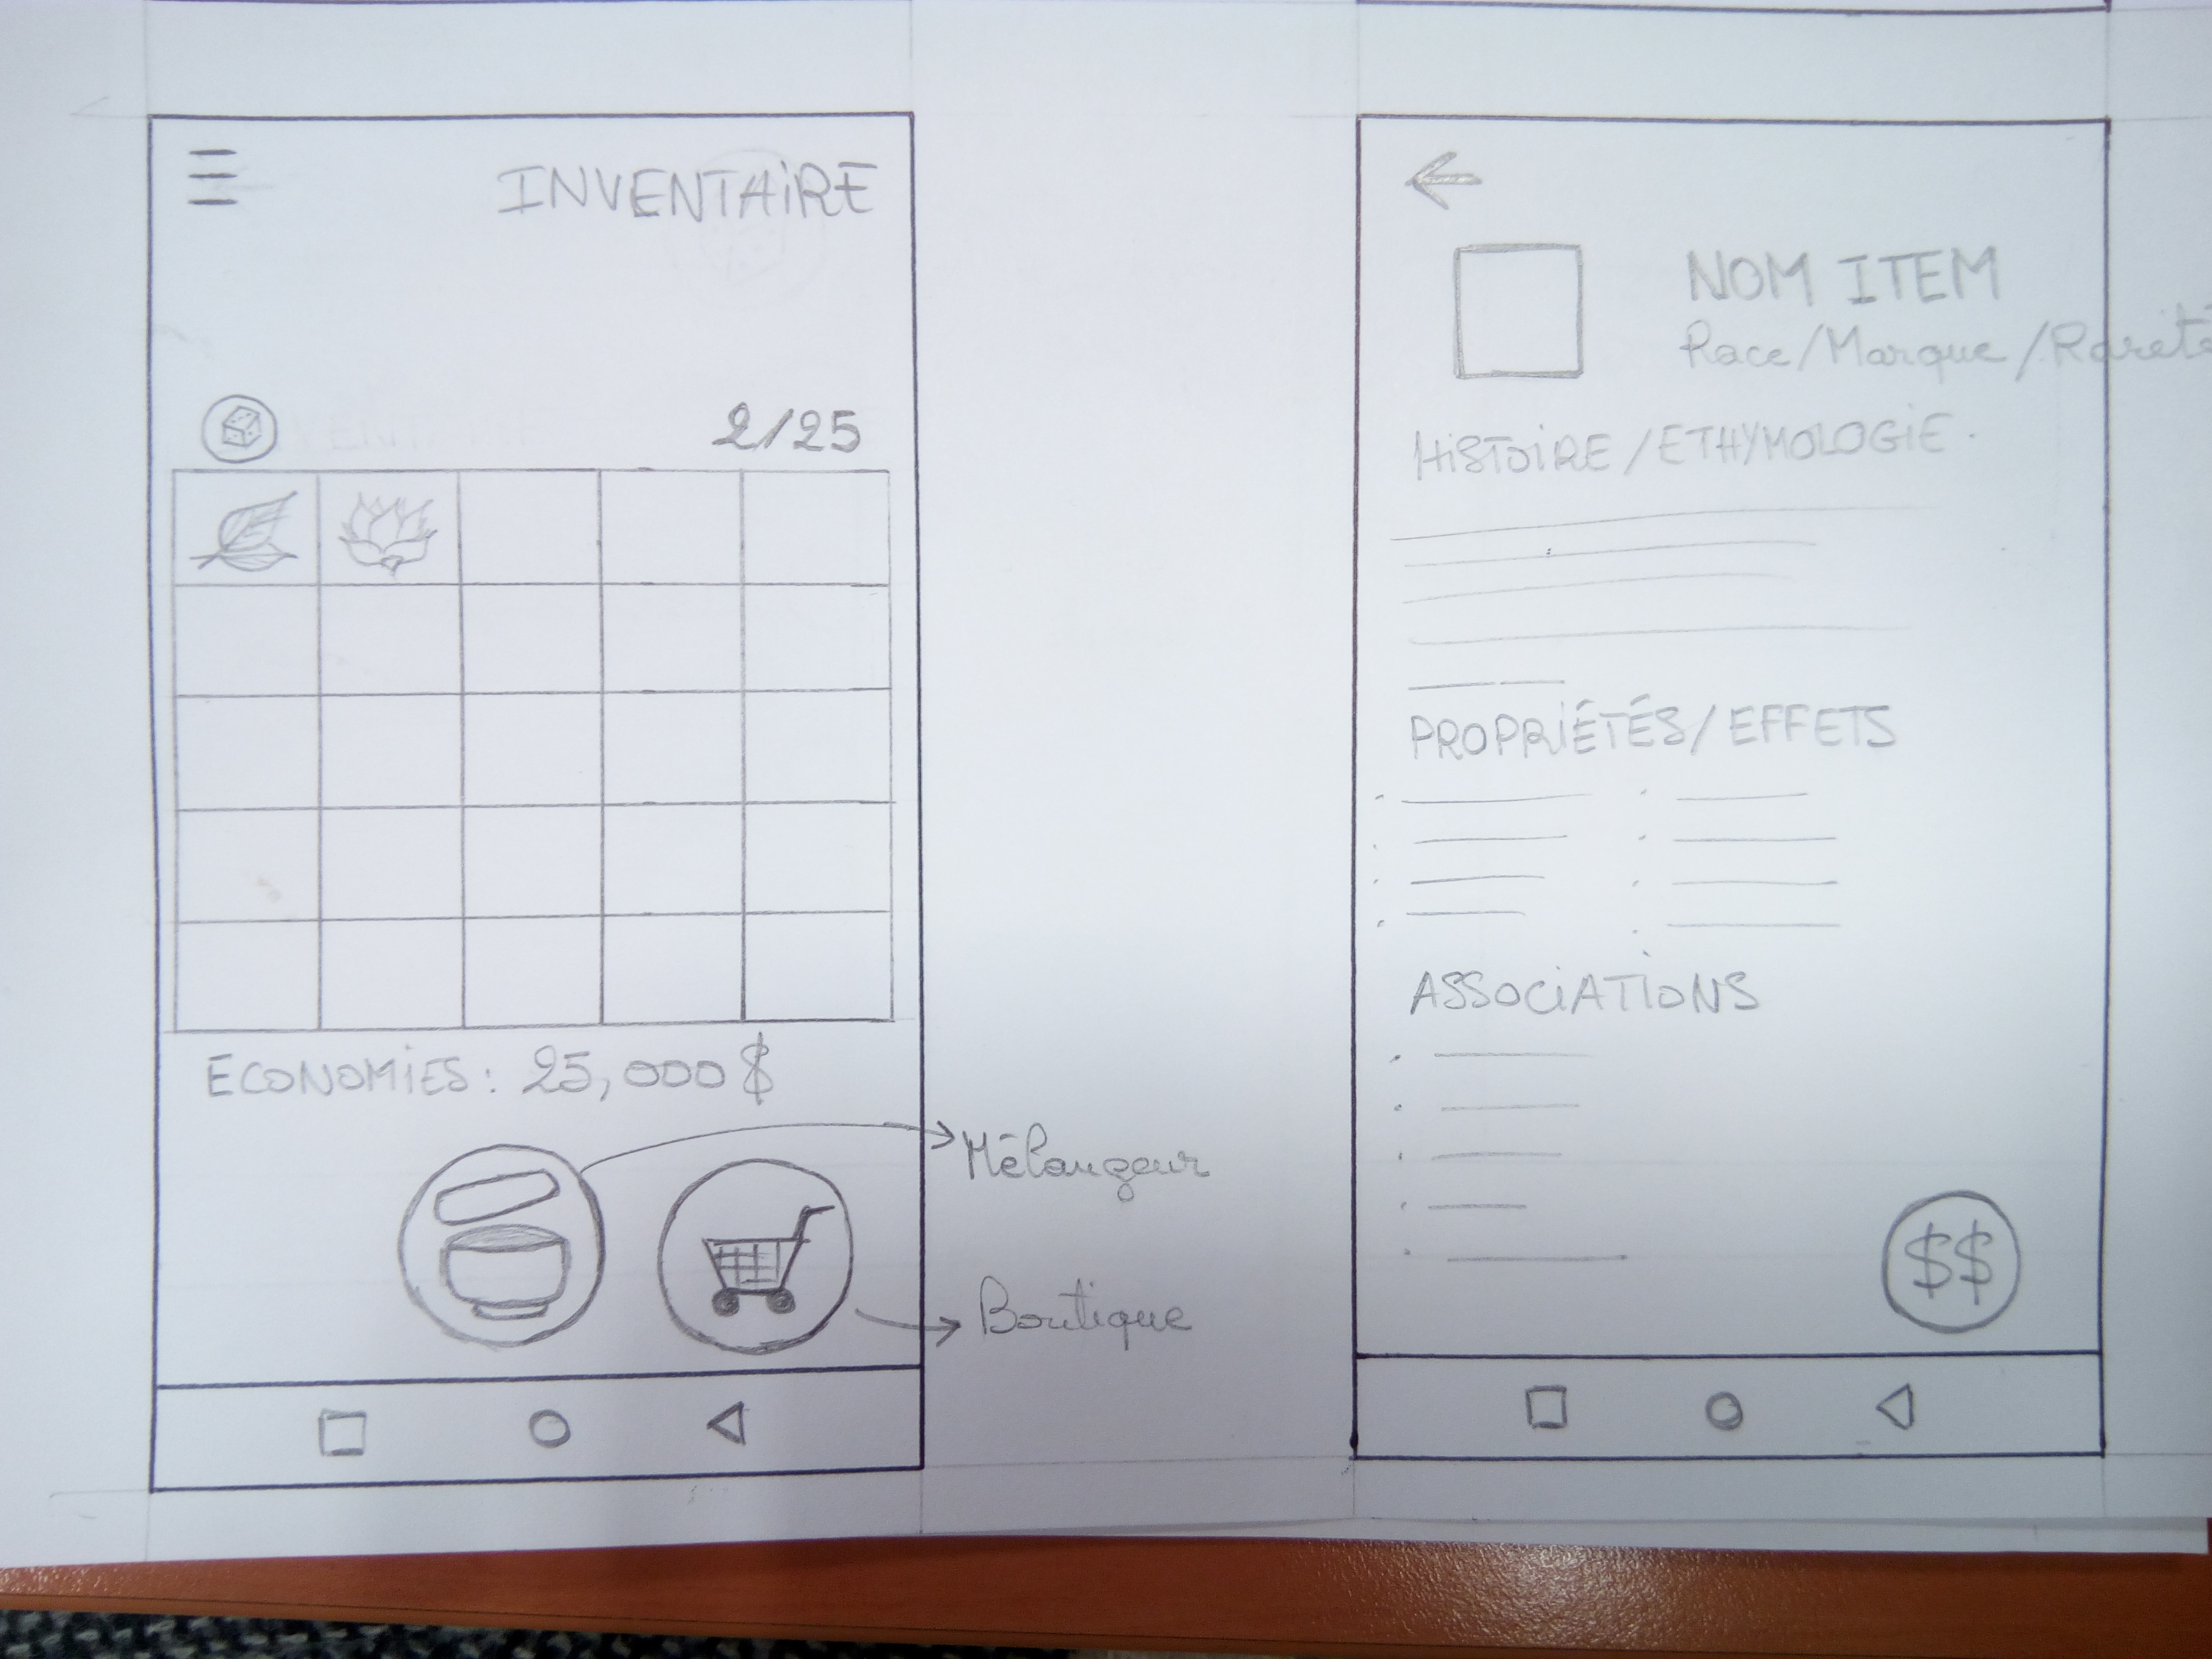 INVENTAIRE
2/25
ECONOMIES: 25,000$
Mélangeur
Boutique
NOM ITEM
Race/Marque/Rareté
HISTOIRE/ETHYMOLOGIE.
PROPRIÉTÉS/EFFETS
ASSOCIATIONS
$$